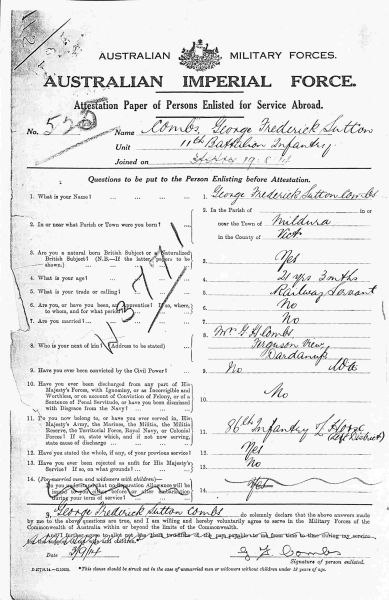 AUSTRALIAN MILITARY FORCES.
AUSTRALIAN IMPERIAL FORCE.
Attestation Paper of Persons Enlisted for Service Abroad.
No. 525 Name Combs George Frederick Sutton
Unit 11th Battalion Infantry
Joined on 19.8.14
Questions to be put to the Person Enlisting before Attestation.
1. What is your Name? 1. George Frederick Sutton Combs
2. In or near what Parish or Town were you born? 2. In the Parish of in or
near the Town of Mildura
in the County of Vict
3. Are you a natural born British Subject or a Naturalized
British Subject? (N.B.—If the latter, papers to be
shown.) 3. Yes
4. What is your age? 4. 21 yrs 3 mths
5. What is your trade or calling? 5. Railway Servant
6. Are you, or have you been, an Apprentice? If so, where,
to whom, and for what period? 6. No
7. Are you married? 7. No
8. Who is your next of kin? (Address to be stated) 8. Mrs G H Combs
Ferguson View
Dardanup
WA
9. Have you ever been convicted by the Civil Power? 9. No
10. Have you ever been discharged from any part of His
Majesty's Forces, with Ignominy, or as Incorrigible and
Worthless, or on account of Conviction of Felony, or of a
Sentence of Penal Servitude, or have you been dismissed
with Disgrace from the Navy? 10. No
11. Do you now belong to, or have you ever served in, His
Majesty's Army, the Marines, the Militia, the Militia
Reserve, the Territorial Force, Royal Navy, or Colonial
Forces? If so, state which, and if not now serving,
state cause of discharge 11. 86th Infantry
12. Have you stated the whole, if any, of your previous service? 12. Yes
13. Have you ever been rejected as unfit for His Majesty's
Service? If so, on what grounds? 13. No
14. (For married men and widowers with children)—
Do you understand that no Separation Allowance will be
issued to you either before or after embarkation
during your term of service? 14. Yes
I, George Frederick Sutton Combs do solemnly declare that the above answers made
by me to the above questions are true, and I am willing and hereby voluntarily agree to serve in the Military Forces of the
Commonwealth of Australia within or beyond the limits of the Commonwealth.
And I further agree to allot not less than two-fifths of the pay payable to me from time to time during my service
3/9/14 G F Combs
Signature of person enlisted.
This clause should be struck out in the case of unmarried men or widowers without children under 18 years of age.